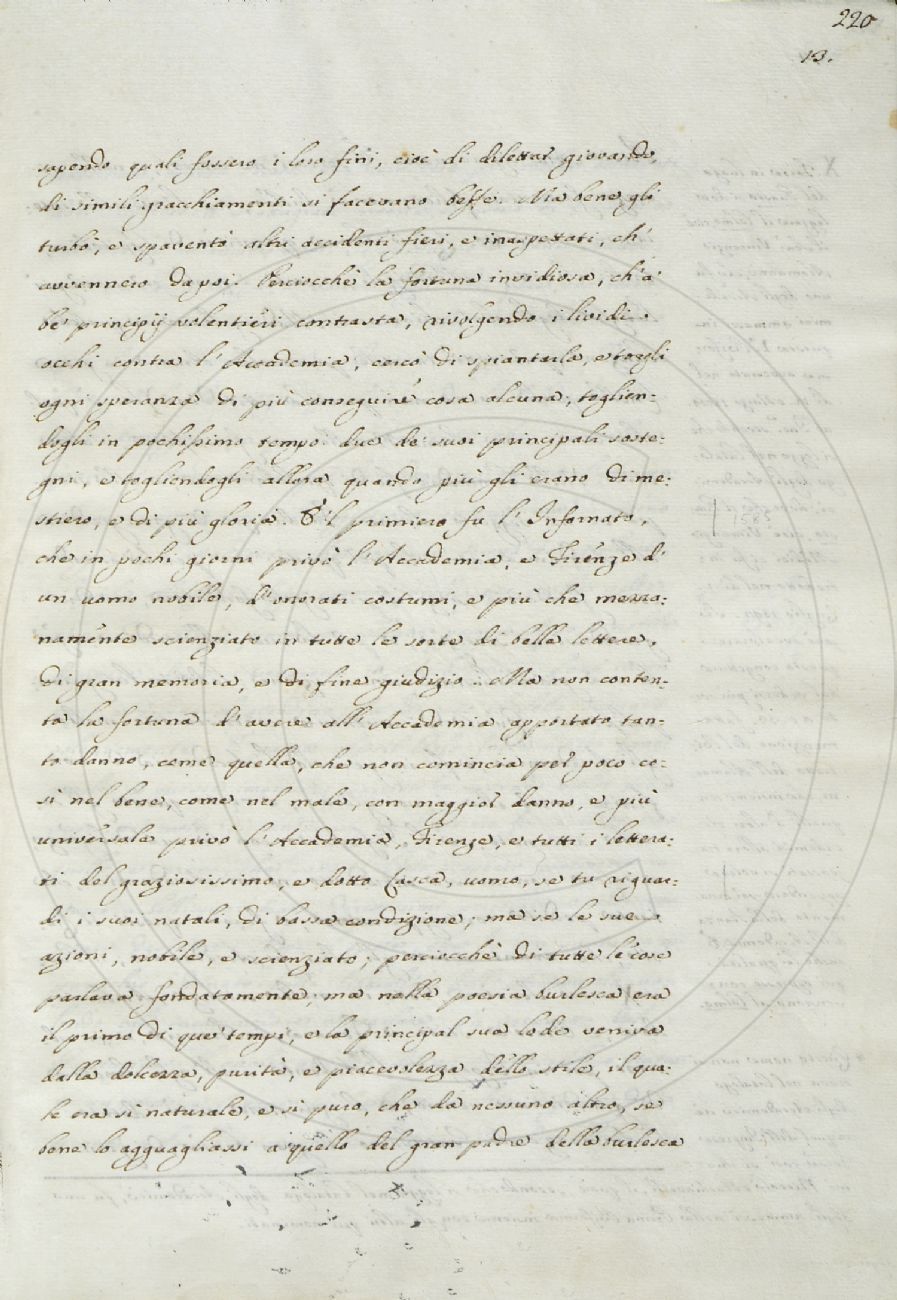 220
13.
sapendo quali fossero i loro fini, cioè di dilettar giovando,
di simili gracchiamenti si facevano beffe. Ma bene gli
turbò, e spaventò altri accidenti fieri, e inaspettati, ch'
avvennero dapoi. Perciocchè la fortuna invidiosa, ch'a'
be' principij volentieri contrasta, rivolgendo i lividi
occhi contra l'Accademia, cercò di spiantarla, e torgli
ogni speranza di più conseguire cosa alcuna, toglien-
dogli in pochissimo tempo due de' suoi principali soste-
gni, e togliendogli allora quando più gli erano di me-
stiero, e di più gloria. E 'l primiero fu l'Infornato,
che in pochi giorni privò l'Accademia, e Firenze d'
un uomo nobile, d'onorati costumi, e più che mezza-
namente scienziato in tutte le sorte di belle lettere,
di gran memoria, e di fine giudizio. Ma non conten-
ta la fortuna d'avere all'Accademia apportato tan-
to danno, come quella, che non comincia per poco co-
sì nel bene, come nel male, con maggior danno, e più
universale privò l'Accademia, Firenze, e tutti i lettera-
ti del graziosissimo, e dotto Lasca, uomo, se tu riguar-
di i suoi natali, di bassa condizione; ma se le sue
azioni, nobile, e scienziato; perciocchè di tutte le cose
parlava fondatamente, ma nella poesia burlesca era
il primo di que' tempi, e la principal sua lode veniva
dalla dolcezza, purità, e piacevolezza dello stile, il qua-
le era sì naturale, e sì puro, che da nessuno altro, se
bene lo agguagliassi a quello del gran padre della burlesca